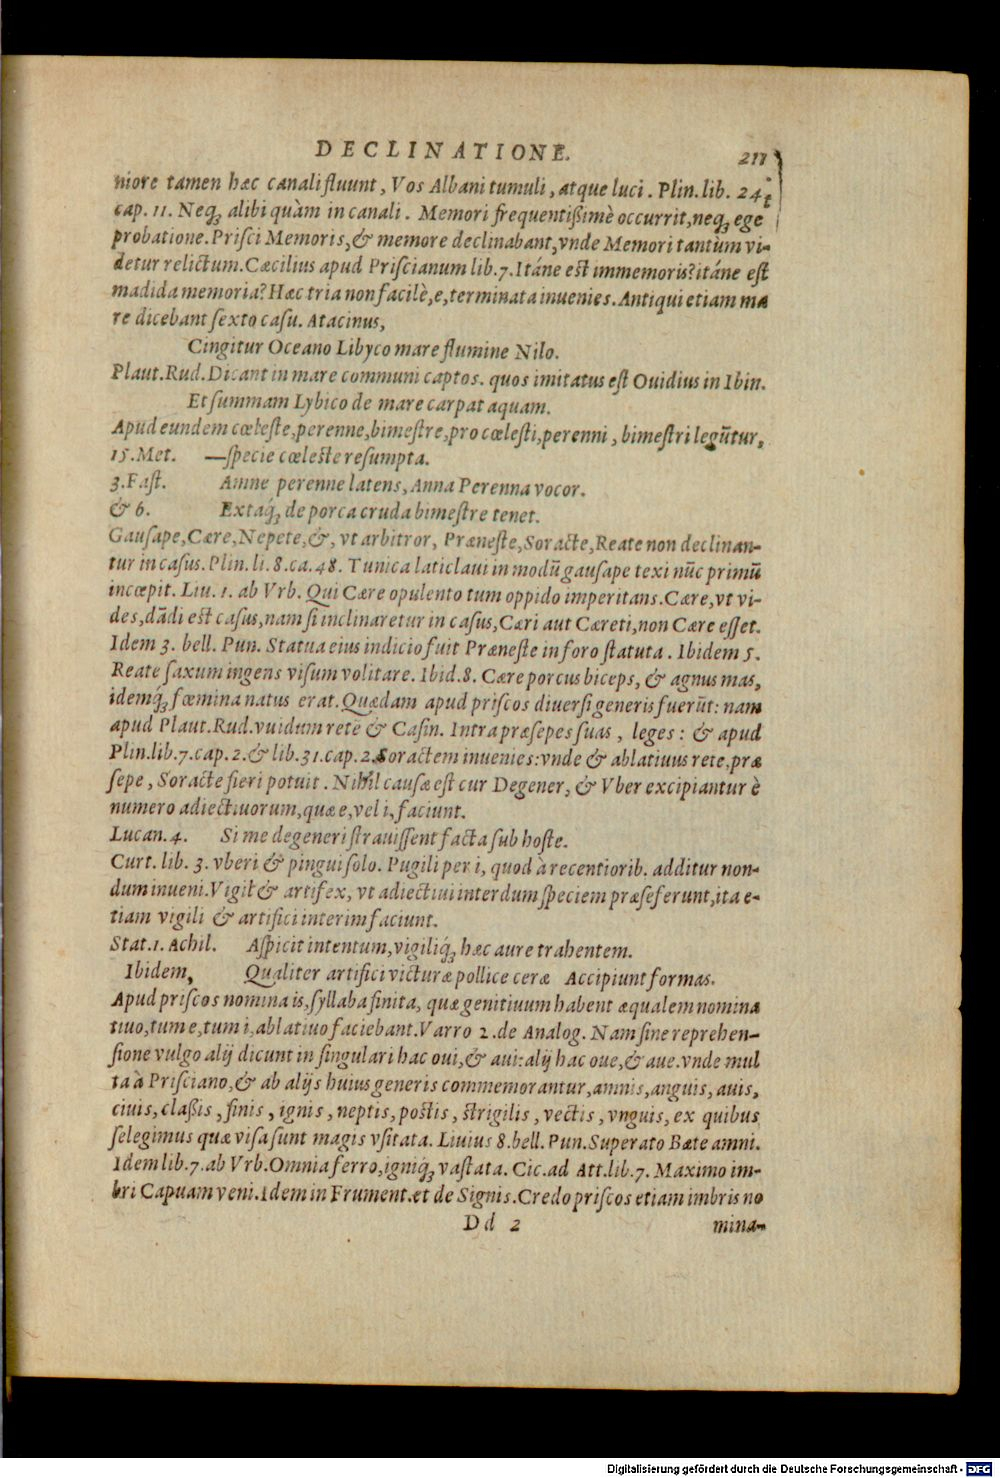 DECLINATIONE. 211
niore tamen hæc canali fluunt, Vos Albani tumuli, atque luci. Plin. lib. 24.
cap. 11. Neqꝫ alibi quàm in canali. Memori frequentißimè occurrit, neqꝫ ege
probatione. Priſci Memoris, & memore declinabant, vnde Memori tantùm vi-
detur relictum. Cæcilius apud Priſcianum lib. 7. Itáne eſt immemoris? itáne eſt
madida memoria? Hæc tria non facilè, e, terminata inuenies. Antiqui etiam ma
re dicebant ſexto caſu. Atacinus,
Cingitur Oceano Libyco mare flumine Nilo.
Plaut. Rud. Dicant in mare communi captos. quos imitatus eſt Ouidius in Ibin.
Et ſummam Lybico de mare carpat aquam.
Apud eundem cœleſte, perenne, bimeſtre, pro cœleſti, perenni, bimeſtri legūtur,
15. Met. —ſpecie cœleſte reſumpta.
3. Faſt. Amne perenne latens, Anna Perenna vocor.
& 6. Extaq́ꝫ de porca cruda bimeſtre tenet.
Gauſape, Cære, Nepete, &, vt arbitror, Præneſte, Soracte, Reate non declinan-
tur in caſus. Plin. li. 8. ca. 48. Tunica laticlaui in modū gauſape texi nūc primū
incœpit. Liu. 1. ab Vrb. Qui Cære opulento tum oppido imperitans. Cære, vt vi-
des, dādi eſt caſus, nam ſi inclinaretur in caſus, Cæri aut Cæreti, non Cære eſſet.
Idem 3. bell. Pun. Statua eius indicio fuit Præneſte in foro ſtatuta. Ibidem 5.
Reate ſaxum ingens viſum volitare. Ibid. 8. Cære porcus biceps, & agnus mas,
idemq́ꝫ fœmina natus erat. Quædam apud priſcos diuerſi generis fuerūt: nam
apud Plaut. Rud. vuidum rete & Caſin. Intra præſepes ſuas, leges: & apud
Plin. lib. 7. cap. 2. & lib. 31. cap. 2. Soractem inuenies: vnde & ablatiuus rete, præ
ſepe, Soracte fieri potuit. Nihil cauſæ eſt cur Degener, & Vber excipiantur è
numero adiectiuorum, quæ e, vel i, faciunt.
Lucan. 4. Si me degeneri ſtrauiſſent facta ſub hoſte.
Curt. lib. 3. vberi & pingui ſolo. Pugili per i, quod à recentiorib. additur non-
dum inueni. Vigil & artifex, vt adiectiui interdum ſpeciem præſeferunt, ita e-
tiam vigili & artifici interim faciunt.
Stat. 1. Achil. Aſpicit intentum, vigiliq́ꝫ hæc aure trahentem.
Ibidem, Qualiter artifici victuræ pollice ceræ Accipiunt formas.
Apud priſcos nomina is, ſyllaba finita, quæ genitiuum habent æqualem nomina
tiuo, tum e, tum i, ablatiuo faciebant. Varro 2. de Analog. Nam ſine reprehen-
ſione vulgo alij dicunt in ſingulari hac oui, & aui: alij hac oue, & aue. vnde mul
ta à Priſciano, & ab alijs huius generis commemorantur, amnis, anguis, auis,
ciuis, claßis, finis, ignis, neptis, poſtis, ſtrigilis, vectis, vnguis, ex quibus
ſelegimus quæ viſa ſunt magis vſitata. Liuius 8. bell. Pun. Superato Bæte amni.
Idem lib. 7. ab Vrb. Omnia ferro, igniq́ꝫ vaſtata. Cic. ad Att. lib. 7. Maximo im-
bri Capuam veni. Idem in Frument. et de Signis. Credo priſcos etiam imbris no
Dd 2 mina-
Digitalisierung gefördert durch die Deutsche Forschungsgemeinschaft - DFG